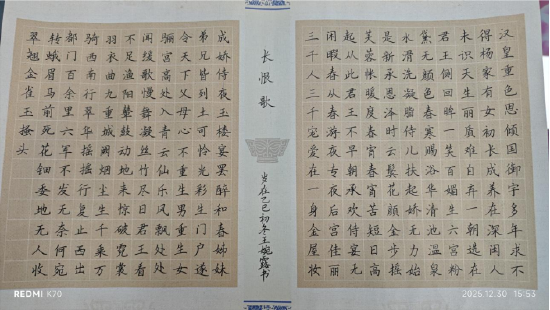 汉皇重色思倾国御宇多年求不
得杨家有女初长成养在深闺人
未识天生丽质难自弃一朝选在
君王侧回眸一笑百媚生六宫粉
黛无颜色春寒赐浴华清池温泉
水滑洗凝脂侍儿扶起娇无力始
是新承恩泽时云鬓花颜金步摇
芙蓉帐暖度春宵春宵苦短日高
起从此君王不早朝承欢侍宴无
闲暇春从春游夜专夜后宫佳丽
三千人三千宠爱在一身金屋妆
长恨歌
岁在乙巳初冬王婉露书
成娇侍夜玉楼宴罢醉和春姊妹
弟兄皆列土可怜光彩生门户遂
令天下父母心不重生男重生女
骊宫高处入青云仙乐风飘处处
闻缓歌慢舞凝丝竹尽日君王看
不足渔阳鼙鼓动地来惊破霓裳
羽衣曲九重城阙烟尘生千乘万
骑西南行翠华摇摇行复止西出
都门百余里六军不发无奈何宛
转蛾眉马前死花钿委地无人收
翠翘金雀玉搔头
REDMI K70
2025.12.30 16:53